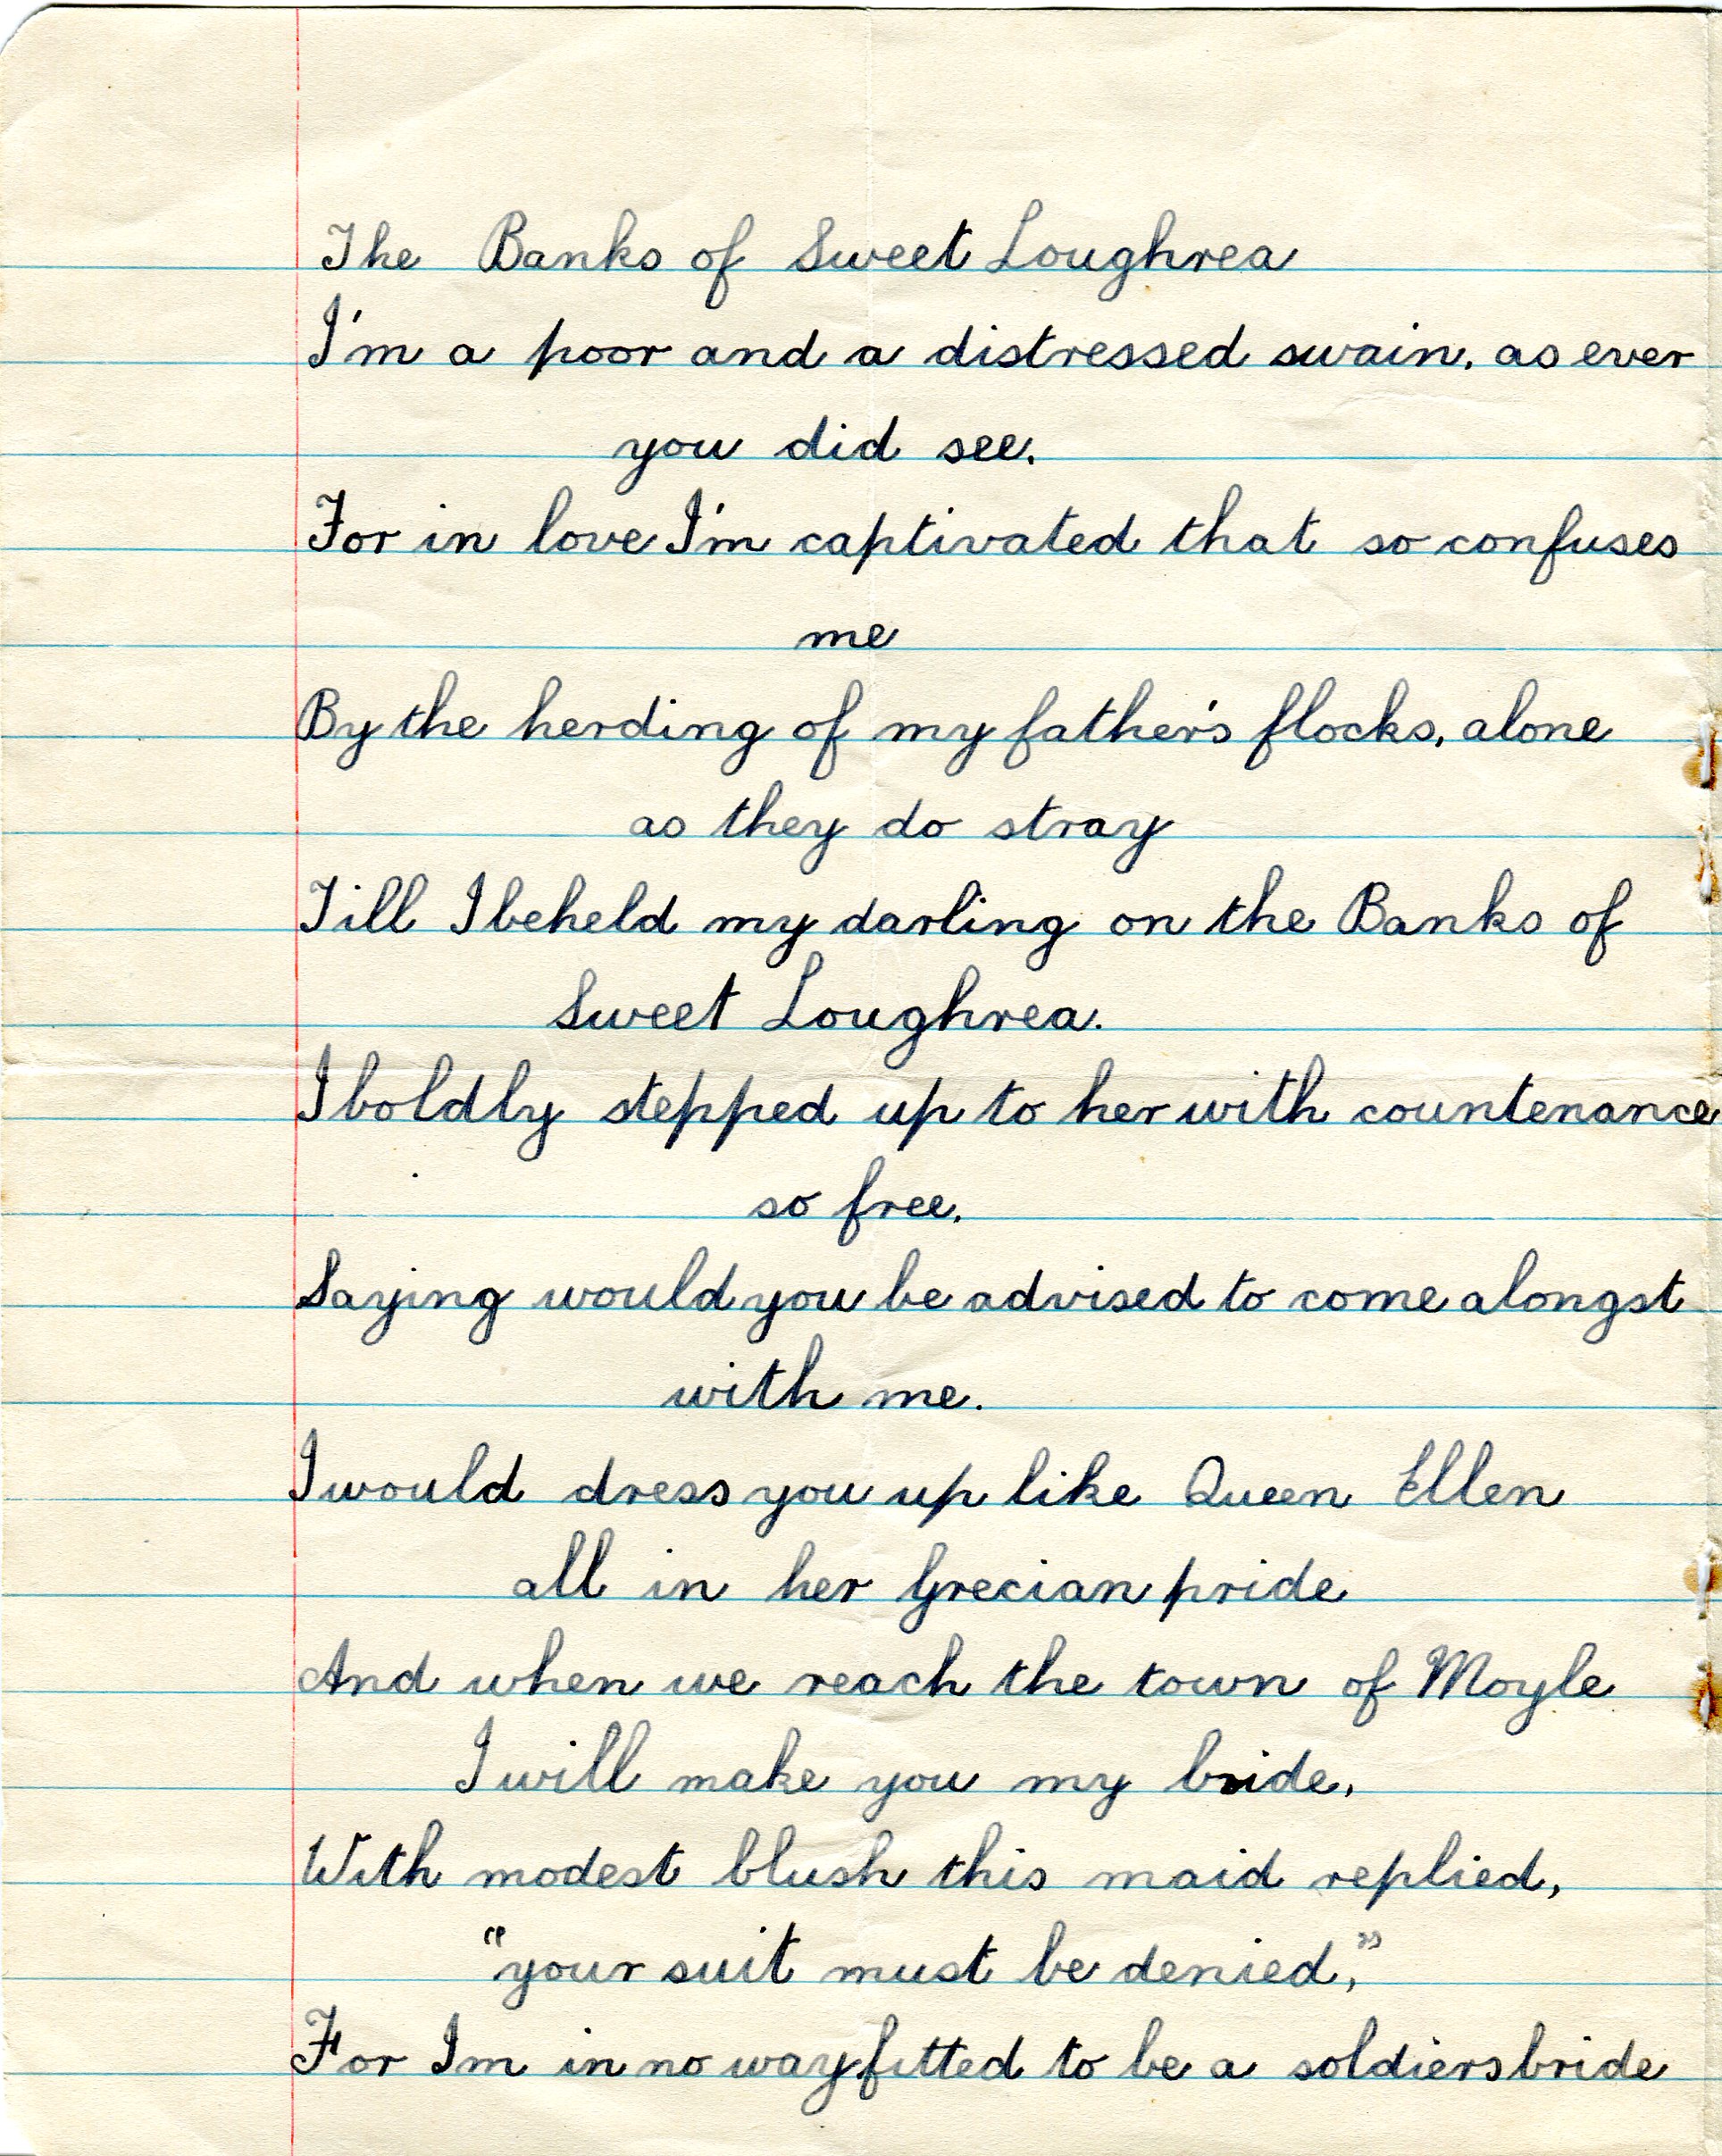 The Banks of Sweet Loughrea
I'm a poor and a distressed swain, as ever
you did see.
For in love I'm captivated that so confuses
me
By the herding of my father's flocks, alone
as they do stray
Till I beheld my darling on the Banks of
Sweet Loughrea.
I boldly stepped up to her with countenance
so free.
Saying would you be advised to come alongst
with me.
I would dress you up like Queen Ellen
all in her Grecian pride
And when we reach the town of Moyle
I will make you my bride,
With modest blush this maid replied,
"your suit must be denied,"
For Im in no way fitted to be a soldiers bride